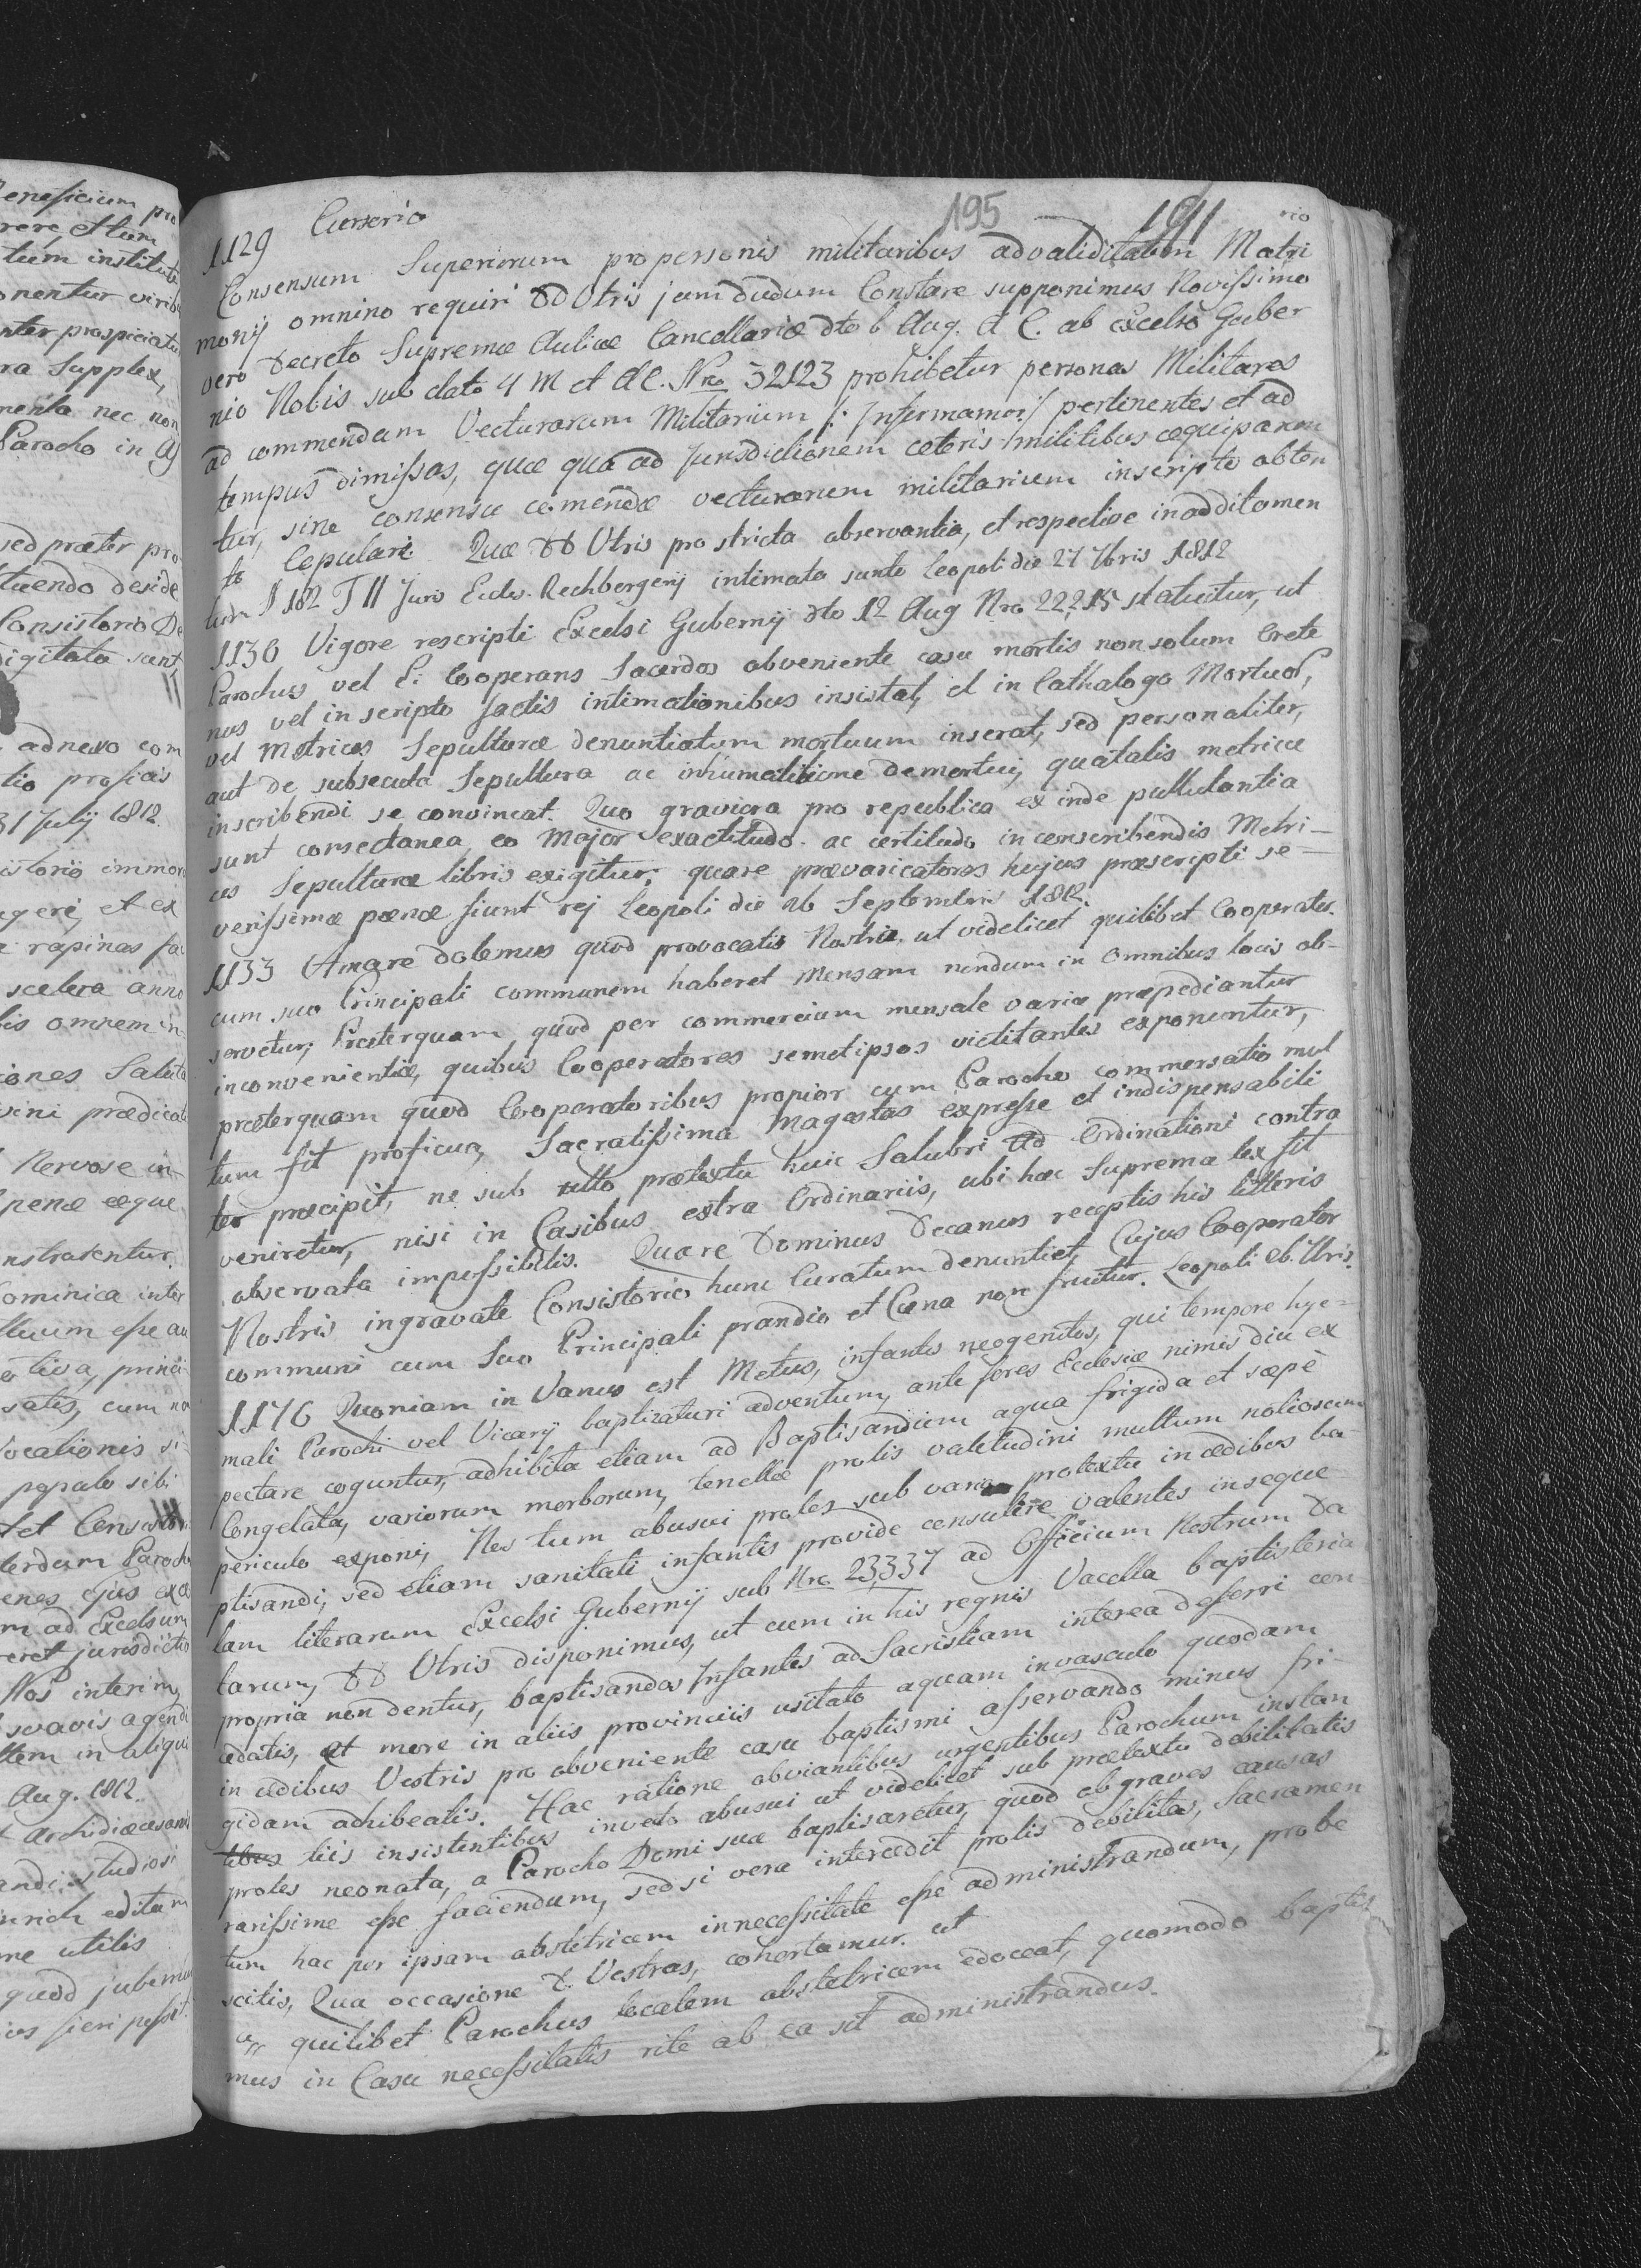 eneficium pro
rere, et tum
tum institut
onentur viribu
nter prospiciatu
ra Supplex,
menta nec non
Parocho in
sed præter pro
tuendo deside
Consistorio De
digitata sunt
adnexo com
tio proficis
31 Julij 1812.
istorio immor
ugeri, et ex
rapinas fac
scelera anno
bis omnem in
iones Saluta
vini prædicat
Nervose in
pena æque
nstrarentur.
Dominica inter
tuum esse au
tiva, princi
satis, cum no
Vocationis si
populo sibi
tet Consistori
terdum Parocho
enes ejus
m ad Excelsum
eret jurisdictio
Nos interim
suavis agendi
tem in aliqui
Aug. 1812.
Archidiæcesan
andi studiosi
inrich editum
me utilis
quod jubemu
ios fieri possit
195
191
Curserio
rio
1129
Consensum Superiorum pro personis militaribus ad validitatem Matri
monij omnino requiri DD Vtris jam dudum Constare supponimus Novissimo
vero Decreto Supremæ Aulicæ Cancellariæ dto 6 Aug. A C. ab Excelso Guber
nio Nobis sub dato 4 M et A C. Nro 32123 prohibetur personas Militares
ad commendam Vecturarum Militarium /: Infermamos :/ pertinentes et ad
tempus dimissas, quæ qua ad Jurisdictionem ceteris militibus æquiparan
tur, sine consensu comendæ vecturarum militarium inscripto obten
to Copulari. Quæ DD Vtris pro stricta observantia, et respective in additamen
tum § 182 T II Juris Eccles. Rechbergerij intimata sunto Leopoli die 27 7bris 1812
1130 Vigore rescripti Excelsi Gubernij dto 12 Aug Nro 22215 statuitur, ut
Parochus vel Ei Cooperans Sacerdos obveniente casu mortis non solum Orete
nus vel in scripto factis intimationibus insistat, et in Cathalogo Mortuor,
vel Metrices Sepulturæ denuntiatum mortuum inserat, sed personaliter,
aut de subsecuta Sepultura ac inhumatitione demortui, qua talis metricæ
inscribendi se convincat. Quo graviora pro republica ex inde pullulantia
sunt consectanea, eo Major exactitudo ac certitudo in conscribendis Metri-
ces Sepulturæ libris exigitur; quare prævaricatores hujus præscripti se-
verissimæ pœnæ fiunt rej Leopoli die 16 Septembris 1812.
1133 Amare dolemus quod provocatis Nostris, ut videlicet quilibet Cooperator
cum suo Principali communem haberet Mensam nondum in Omnibus locis ob-
servetur; Præterquam quod per commercium mensale variæ præpediantur
inconvenientiæ, quibus Cooperatores semetipsos victitantes exponuntur,
præterquam quod Cooperatoribus propior cum Parocho commersatio mul
tum sit proficua, Sacratissima Magestas expresse et indispensabili
ter præcipit, ne sub ullo prætextu huic Salubri Ad Ordinationi contra
veniretur, nisi in Casibus extra Ordinariis, ubi hæc Suprema lex sit
observata impossibilis. Quare Dominus Decanus receptis his litteris
Nostris ingravate Consistorio hunc Curatum denuntiet, Cujus Cooperator
communi cum Suo Principali prandio et Cæna non fruitur. Leopoli
1176 Quoniam in Vanus est Metus, infantes neogenitos, qui tempore hye-
mali Parochi vel Vicarij baptizaturi adventum, ante fores Ecclesiæ nimis diu ex
pectare coguntur, adhibita etiam ad Baptisandum aqua frigida et sæpè
Congelata, variorum morborum, tenellæ prolis valetudini multum
periculo exponi, Nos tum abusui proles sub vano protextu in ædibus ba
ptisandi, sed etiam sanitati infantis provide consulere valentes inseque
lam literarum Excelsi Gubernij sub Nro 23337 ad Officium Nostrum Da
tarum, DD Vtris disponimus, ut cum in his regnis Vacella baptisteria
propria non dentur, baptisandos Infantes ad Sacristiam interea deferri con
cedatis, et more in aliis provinciis usitato aquam in vasculo quodam
in ædibus Vestris pro obveniente casu baptismi asservando minus fri-
gidam adhibeatis. Hac ratione obviantibus urgentibus Parochum instan
tiis insistentibus inveto abusui ut videlicet sub prætextu debilitatis
proles neonata, a Parocho Domi suæ baptisaretur, quod ob graves causas
rarissime esse faciendum, sed si vera intercedit prolis debilitas, Sacramen
tum hac per ipsam abstetricem in necessitate esse administrandum, probe
scitis, Qua occasione D. Vestras, cohortamur. ut
a quilibet Parochus localem abstetricem edoceat, quomodo baptis
mus in Casu necessitatis rite ab ea sit administrandus.